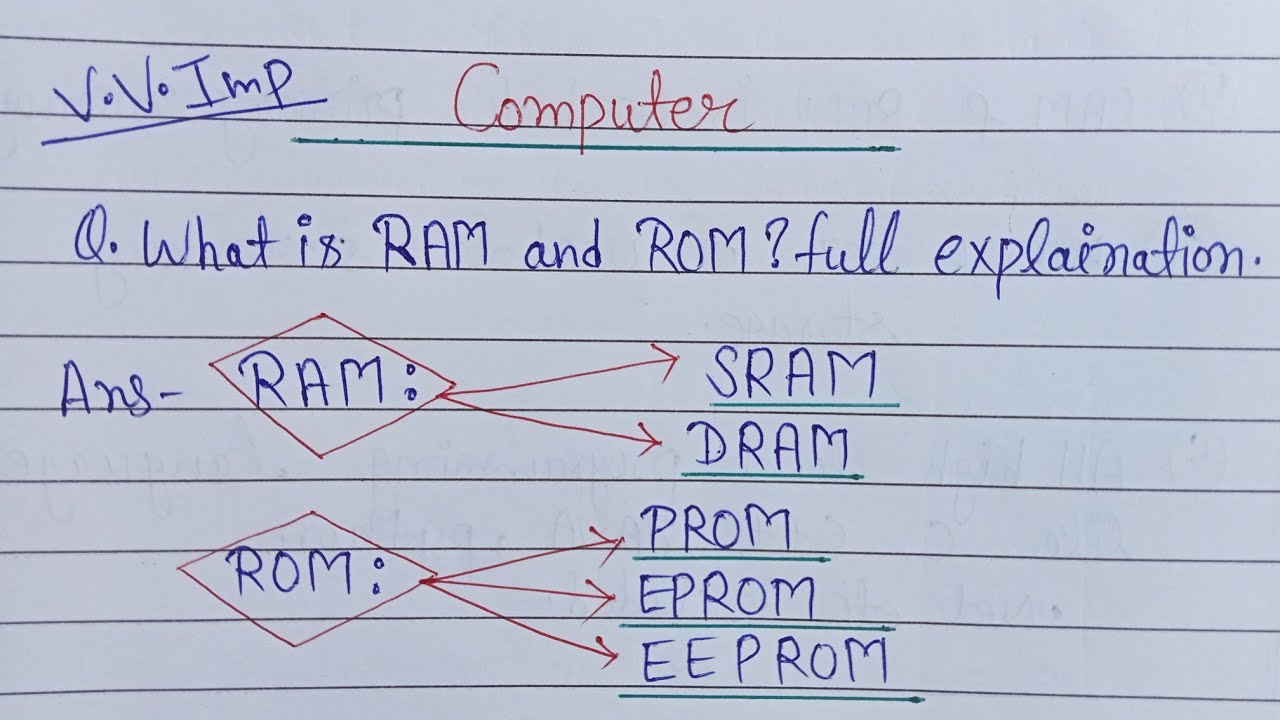 V.V.Imp Computer
Q. What is RAM and ROM? full explaination.
Ans- RAM: SRAM
DRAM
ROM: PROM
EPROM
EEPROM